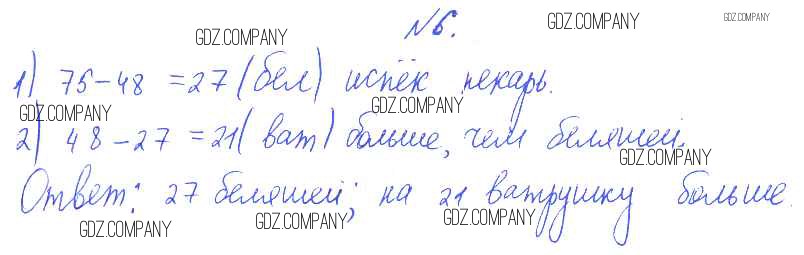 №6.
GDZ.COMPANY GDZ.COMPANY GDZ.COMPANY
1) 75-48 =27 (бел) испёк пекарь.
GDZ.COMPANY GDZ.COMPANY
2) 48-27 =21 (ват) больше, чем беляшей.
GDZ.COMPANY
Ответ: 27 беляшей; на 21 ватрушку больше.
GDZ.COMPANY GDZ.COMPANY GDZ.COMPANY